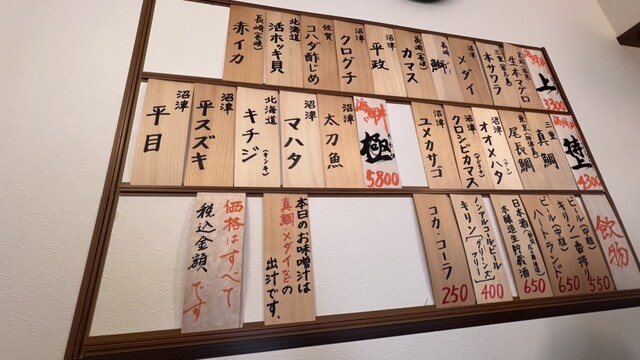 海鮮丼
上
3300
生本マグロ
三重
本サワラ
沼津
メダイ
長崎
鰤
長崎
カマス
沼津
平政
沼津
クログチ
佐賀
コハダ酢じめ
北海道
活ホッキ貝
長崎
赤イカ
海鮮丼
特上
4300
三重
真鯛
東京
尾長鯛
沼津
オオメハタ
沼津
クロシビカマス
沼津
ユメカサゴ
海鮮丼
極
5800
沼津
太刀魚
沼津
マハタ
北海道
キチジ
(キンキ)
沼津
平スズキ
沼津
平目
飲物
ビール(中瓶)
キリン一番搾り
550
ビール(中瓶)
ハートランド
650
日本酒
本醸造生貯蔵酒
650
ノンアルコールビール
キリン[グリーンズフリー]
400
コカ・コーラ
250
本日のお味噌汁は
真鯛メダイなどの
出汁です。
価格はすべて
税込金額です